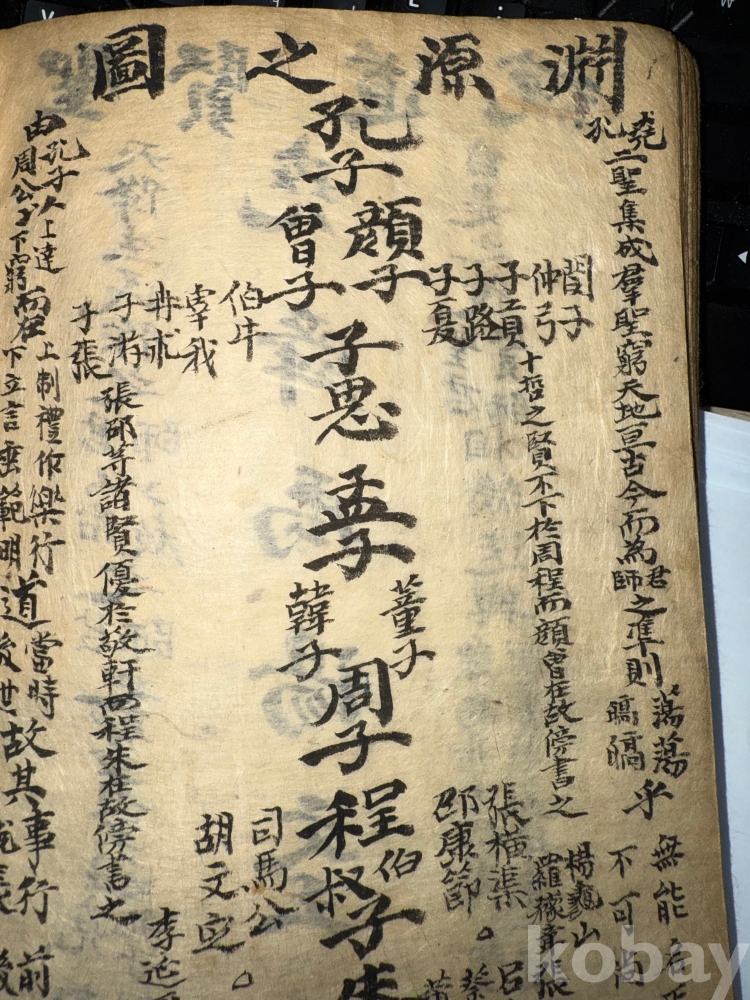 淵源之圖
堯孔二聖集成羣聖窮天地亘古今而為君師之準則蕩蕩皜皜乎無能
不可尚
閔子
仲弓
子貢
子路
子夏
十哲之賢不下於周程而顏曾在故傍書之
張橫渠
邵康節
楊龜山
羅豫章
張
呂
孔子
顏子
曾子
子思
孟子
董子
韓子
周子
程伯叔子
朱
司馬公
胡文定
伯牛
宰我
冉求
子游
子張
張邵等諸賢優於敬軒而程朱在故傍書之
李延
由孔子以上達而在上制禮作樂行道當時故其事行前
周公以下窮而在下立言垂範明後世故
kobay